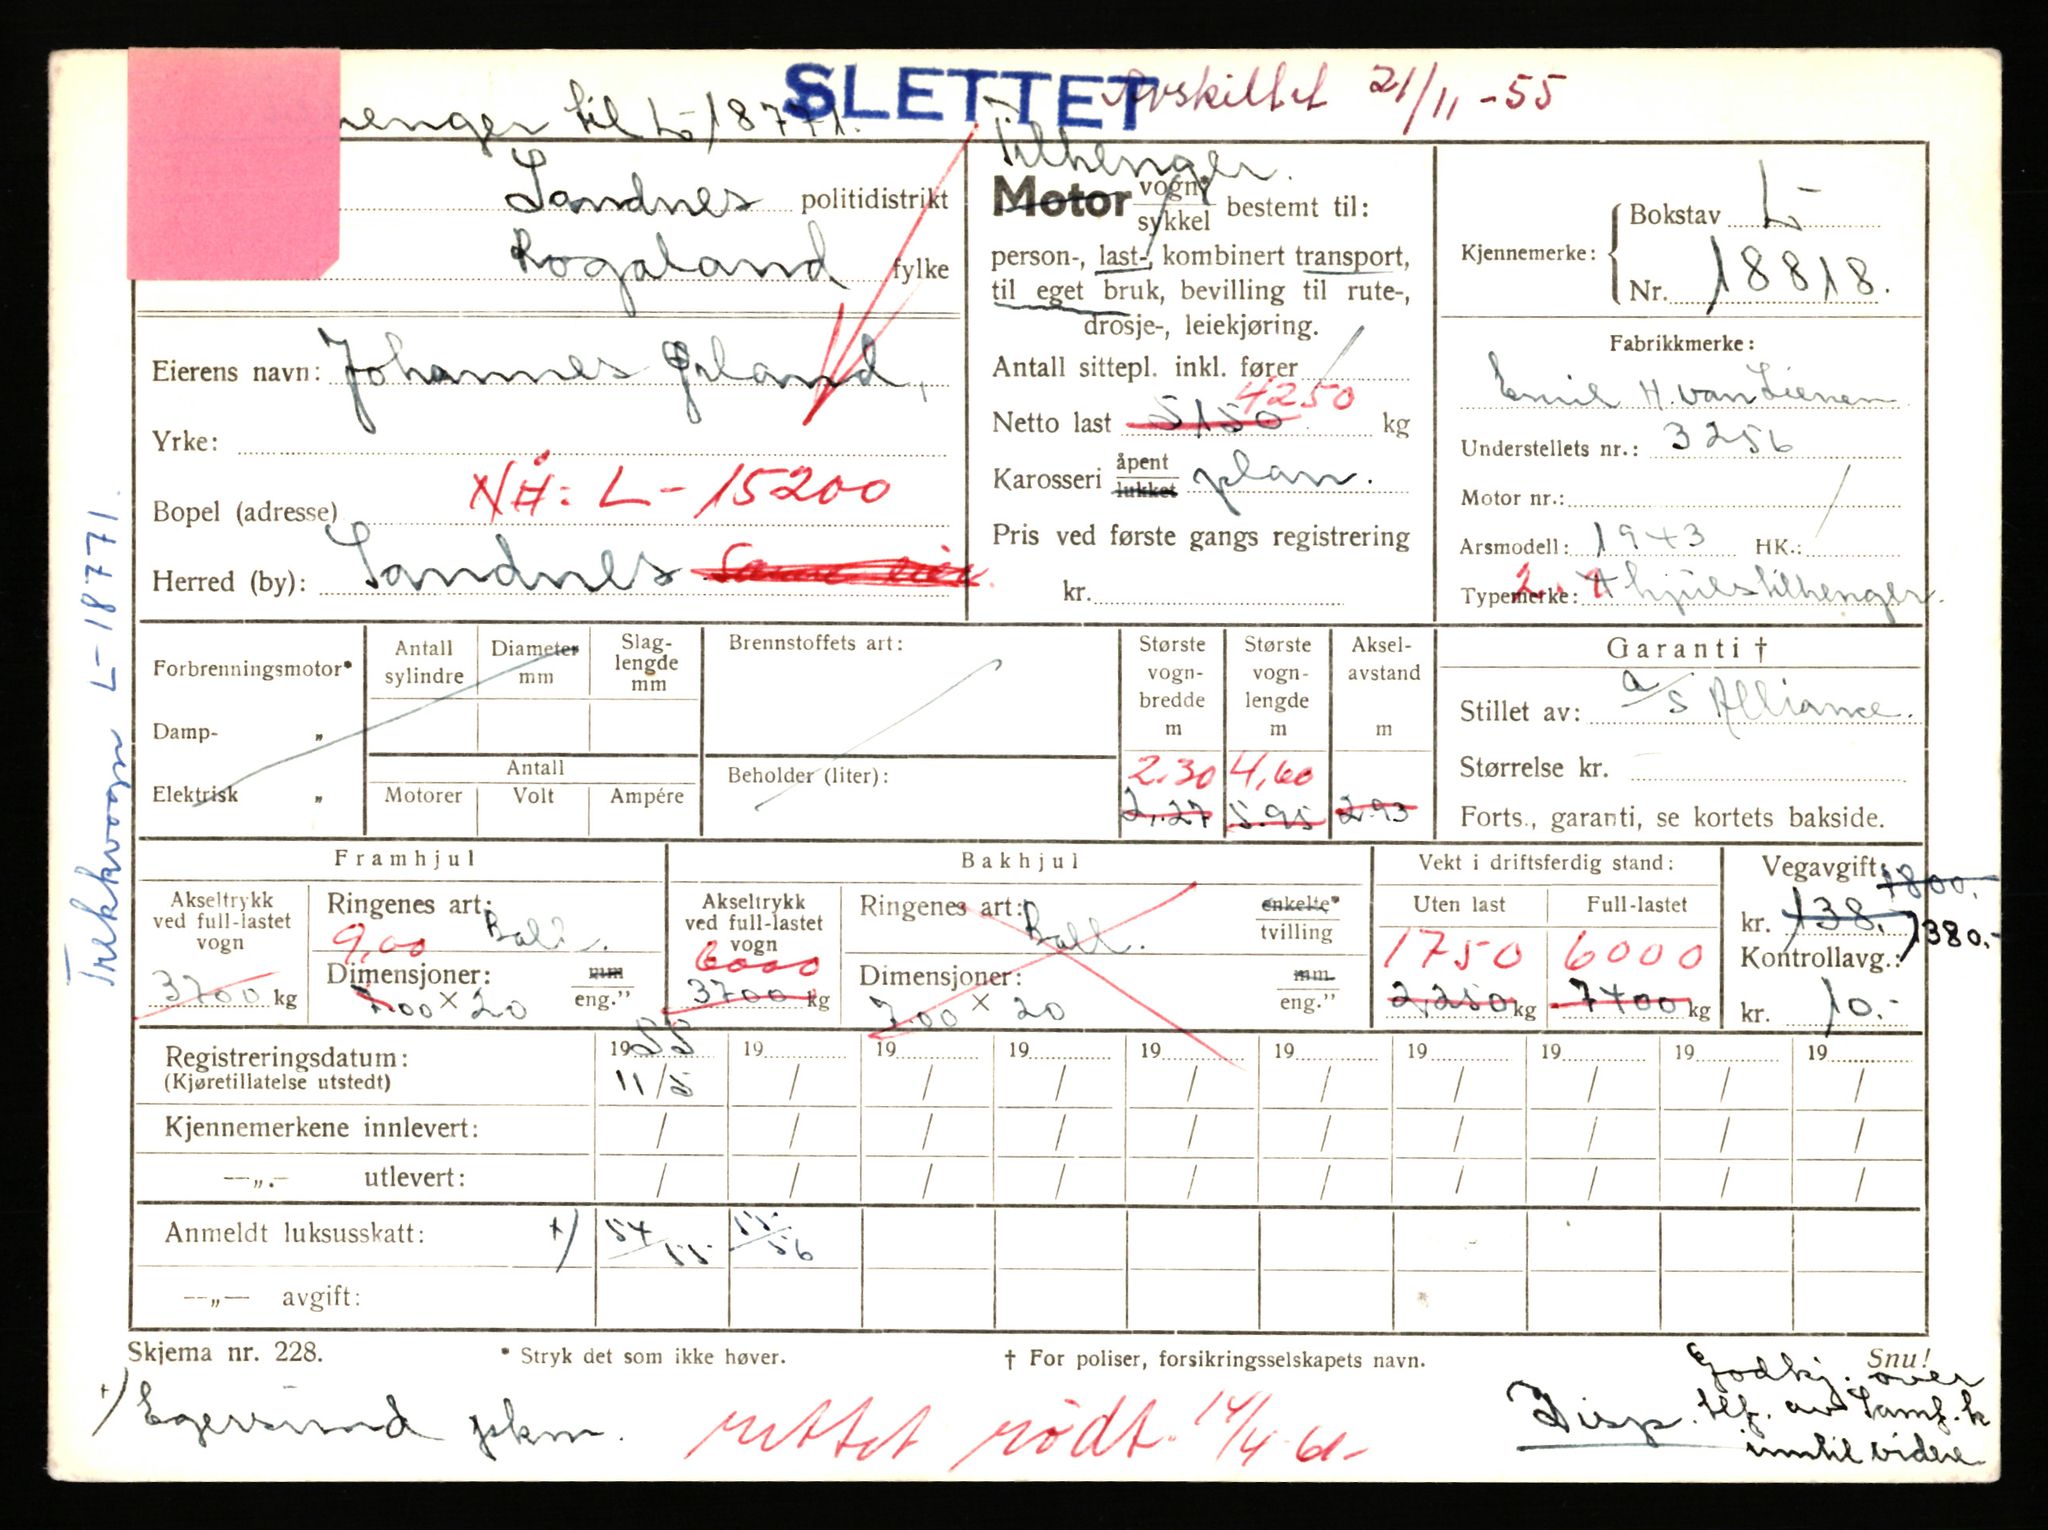 SLETTET Avskiltet 21/11-55
henger til L-18771.
Sandnes politidistrikt
Rogaland fylke
Eierens navn: Johannes
Yrke:
NÅ: L-15200
Bopel (adresse)
Herred (by): Sandnes Samme eier.
Tilhenger.
Motor vogn* sykkel bestemt til:
person-, last-, kombinert transport,
til eget bruk, bevilling til rute-,
drosje-, leiekjøring.
Antall sittepl. inkl. fører /
4250
Netto last 5150 kg
Karosseri åpent lukket plan.
Pris ved første gangs registrering
kr.
Kjennemerke: Bokstav L-
Nr. 18818.
Fabrikkmerke:
Emil H. van Lienen
Understellets nr.: 3256
Motor nr.:
Arsmodell: 1943 HK.: /
Typemerke: 2. 4 hjuls tilhenger.
Trekkvogn L-18771.
Forbrenningsmotor*
Damp- "
Elektrisk "
Antall sylindre
Diameter mm
Slag-lengde mm
Antall
Motorer Volt Ampére
Brennstoffets art:
Beholder (liter):
Største vogn-bredde m
2.30
2.27
Største vogn-lengde m
4,60
5.95
Aksel-avstand m
2.93
Garanti †
Stillet av: a/s Alliance.
Størrelse kr.
Forts., garanti, se kortets bakside.
Framhjul
Akseltrykk ved full-lastet vogn
3700 kg
Ringenes art: Ball.
9,00
Dimensjoner: mm eng."
7.00 x 20
Bakhjul
Akseltrykk ved full-lastet vogn
6000
3700 kg
Ringenes art: Ball. enkelte* tvilling
Dimensjoner: mm eng."
7.00 x 20
Vekt i driftsferdig stand:
Uten last Full-lastet
1750 6000
2.250 kg 7400 kg
Vegavgift: 1800.-
kr. 138. 1380.-
Kontrollavg.:
kr. 10.-
Registreringsdatum: 1955 19 19 19 19 19 19 19 19 19
(Kjøretillatelse utstedt) 11/5 / / / / / / / / /
Kjennemerkene innlevert: / / / / / / / / / /
—„.— utlevert: / / / / / / / / / /
Anmeldt luksusskatt: +) 54/55 55/56
—„— avgift:
Skjema nr. 228. * Stryk det som ikke høver. † For poliser, forsikringsselskapets navn. Snu!
+) Egersund pkm.
rettet rødt. 14/4-61-
Disp. Godkj. over
tlf. av Samf.k
inntil videre